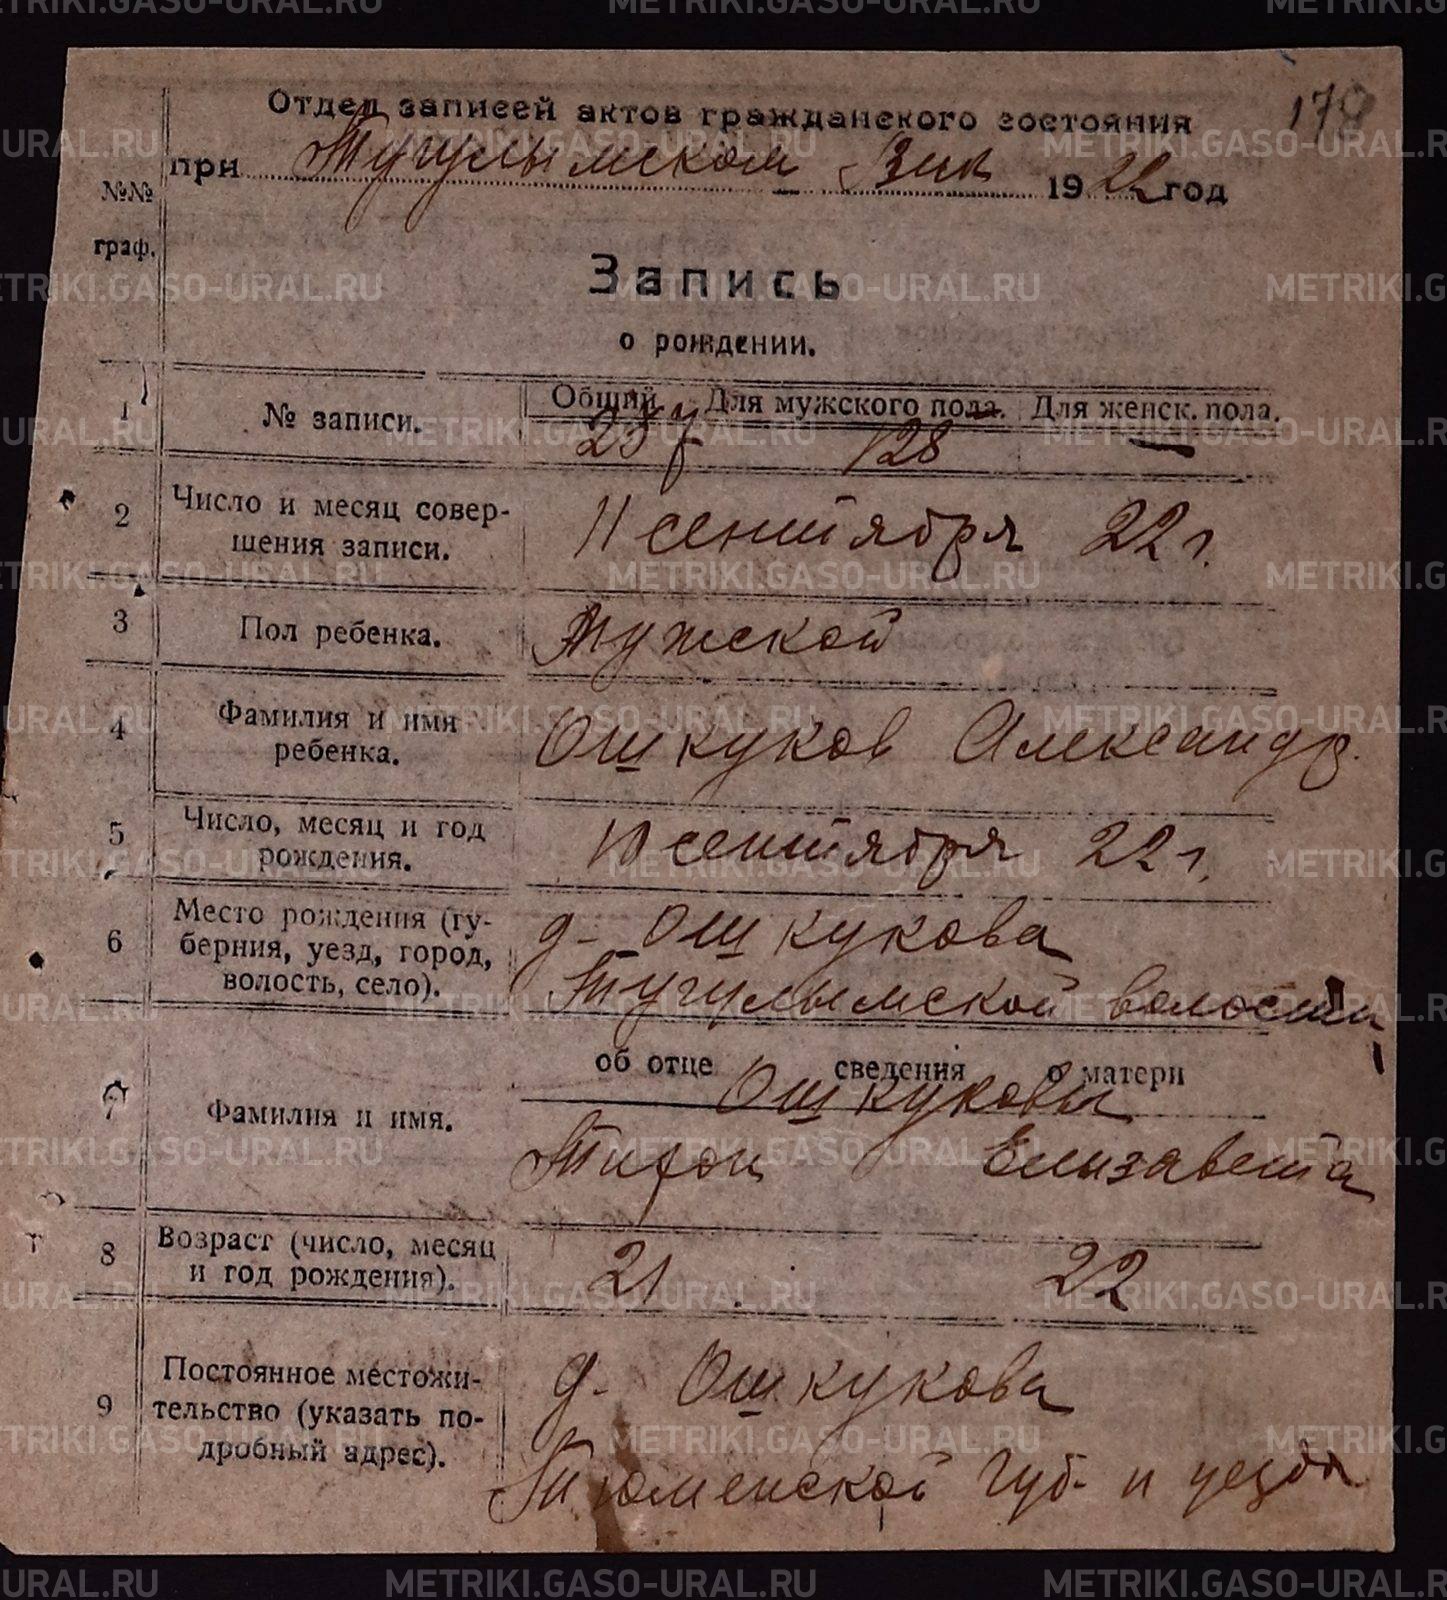 Отдел записей актов гражданского состояния
при Тугулымском Вик 1922 год
№№ граф.
Запись
о рождении.
1 № записи. Общий Для мужского пола. Для женск. пола.
257 128 —
2 Число и месяц совер-
шения записи. 11 сентября 22 г.
3 Пол ребенка. Мужской
4 Фамилия и имя
ребенка. Ошкуков Александр.
5 Число, месяц и год
рождения. 10 сентября 22 г.
6 Место рождения (гу-
берния, уезд, город,
волость, село). д- Ошкукова
Тугулымской волости
об отце сведения о матери
Ошкуковы
7 Фамилия и имя. Тифон Елизавета
8 Возраст (число, месяц
и год рождения). 21 22
9 Постоянное местожи-
тельство (указать по-
дробный адрес). д- Ошкукова
Тюменской Губ- и уезда
METRIKI.GASO-URAL.RU